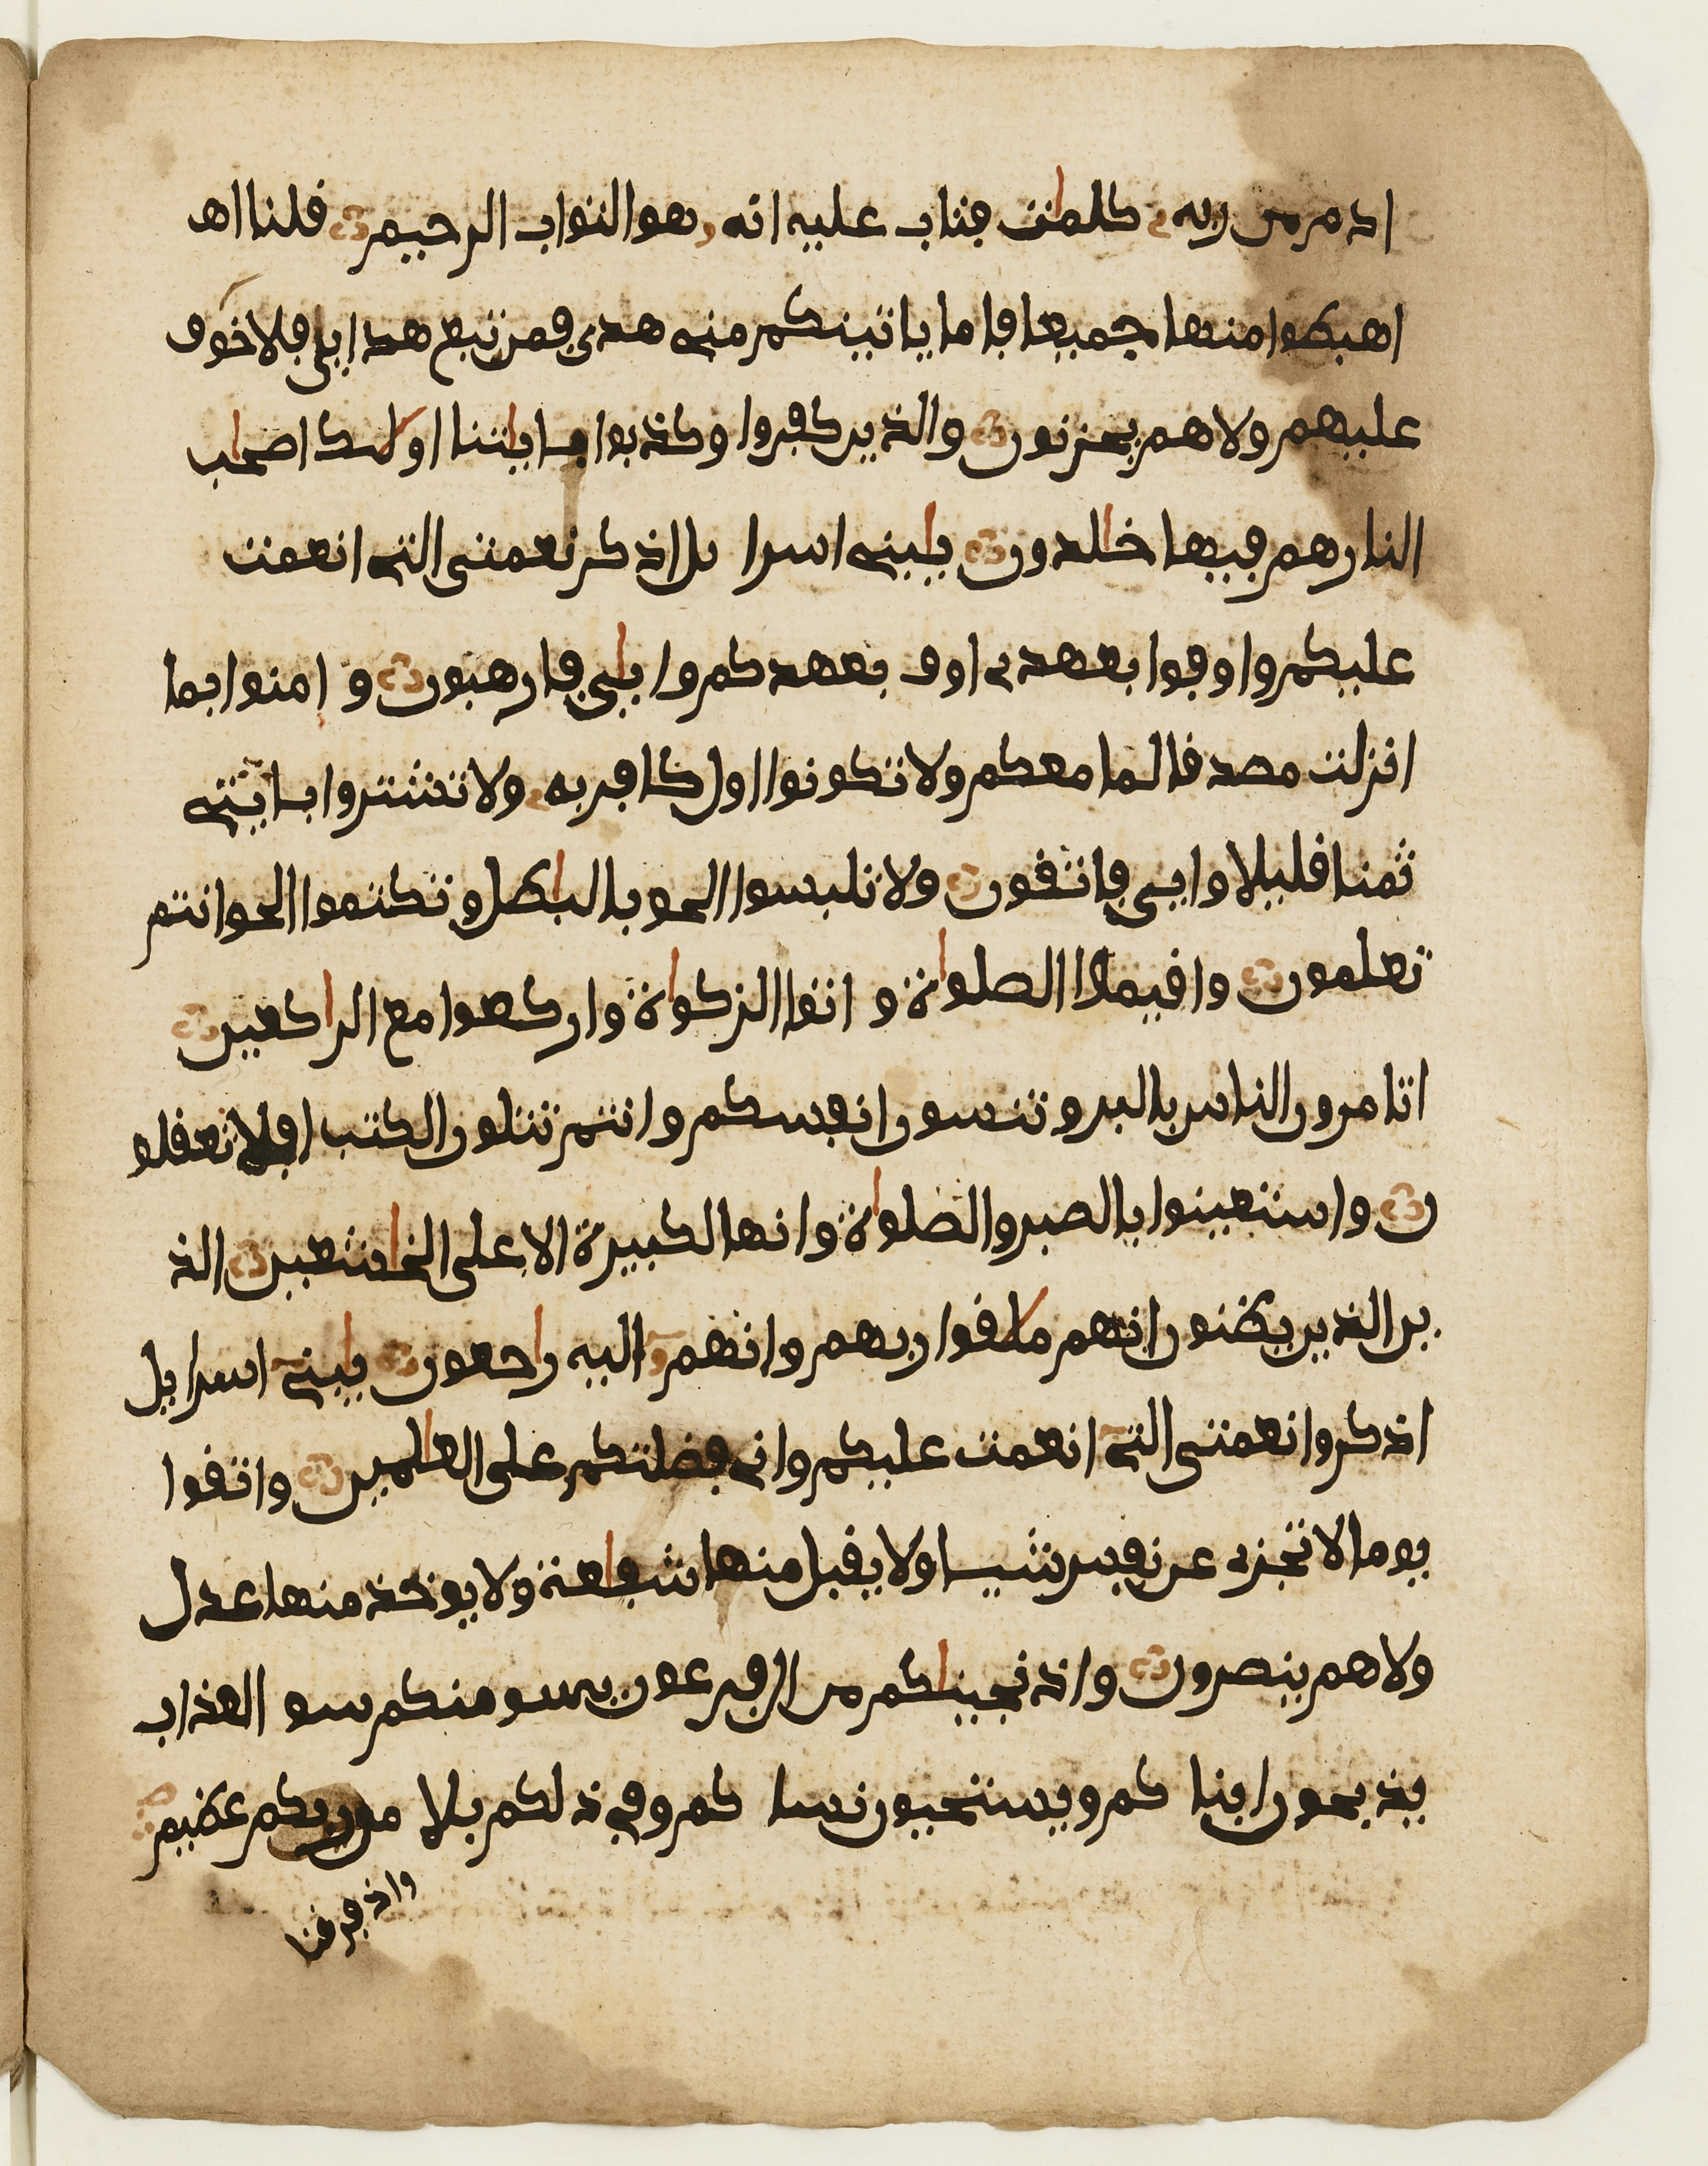 ادم من ربه كلمات فتاب عليه انه هو التواب الرحيم قلنا اهـ
اهبطوا منها جميعا فاما ياتينكم منى هدى فمن تبع هداي فلا خوف
عليهم ولا هم يحزنون والذين كفروا وكذبوا باياتنا اولىك اصحاب
النار هم فيها خالدون يابنى اسرا يل اذكر نعمتى التى انعمت
عليكم واوفوا بعهدى اوف بعهدكم واياي فارهبون و امنوا بما
انزلت مصدقا لما معكم ولا تكونوا اول كافر به ولا تشتروا بايتى
ثمنا قليلا وايي فاتقون ولا تلبسوا الحق بالباطل وتكتموا الحق وانتم
تعلمون واقيموا الصلواة و اتوا الزكواة واركعوا مع الراكعين
اتامرون الناس بالبر وتنسون انفسكم وانتم تتلون الكتب افلا تعقلو
ن واستعينوا بالصبر والصلواة وانها لكبيرة الا على الخاشعين الذ
ين الذين يظنون انهم ملاقوا ربهم وانهم اليه راجعون يابنى اسرايل
اذكروا نعمتى التى انعمت عليكم وانى فضلتكم على العالمين واتقوا
يوما لا تجزى عن نفس شيـا ولا يقبل منها شفاعة ولا يوخذ منها عدل
ولا هم ينصرون واذ نجيناكم من ال فرعون يسومنكم سو العذاب
يذبحون ابنا كم ويستحيون نسا كم وفي ذلكم بلا من ربكم عظيم
واذ فرقنا